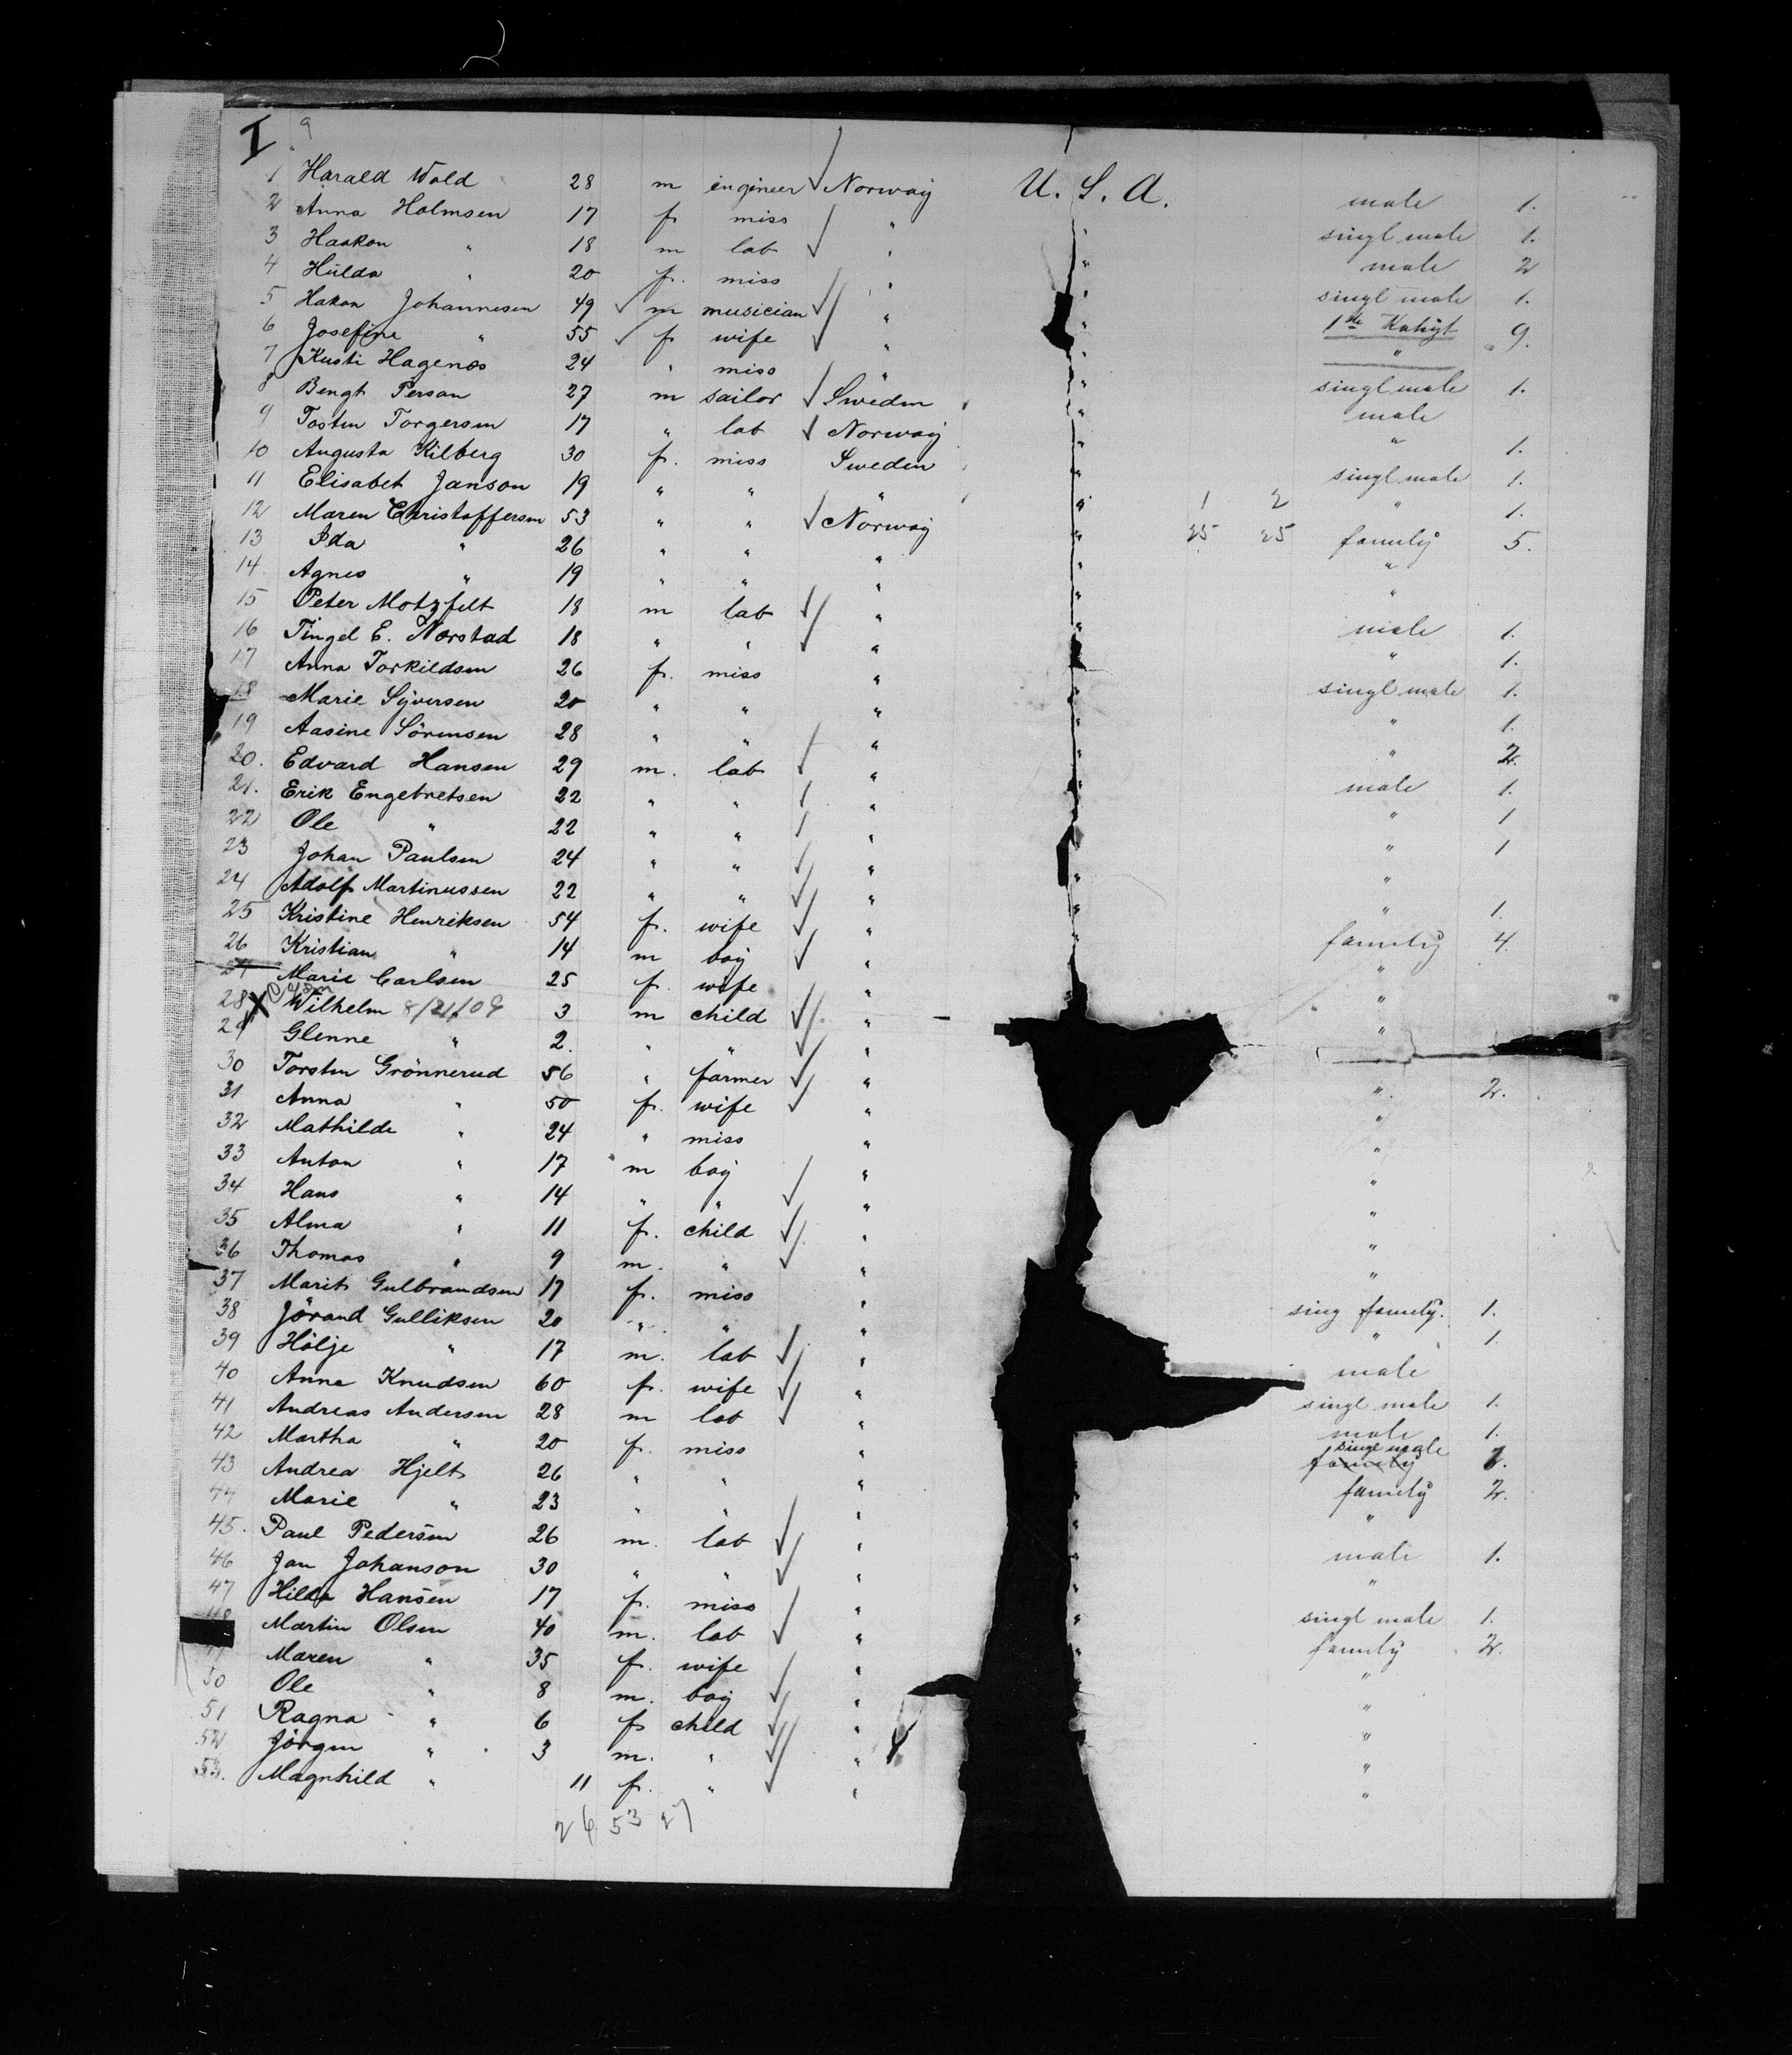 I 9
1 Harald Wold 28 m engineer Norway U. S. A. male 1.
2 Anna Holmsen 17 f. miss " " singl male 1.
3 Haakon " 18 m lab " " male 2
4 Hulda " 20 f. miss " " singl male 1.
5 Hakon Johannesen 49 m musician " " 1ste Kahyt 9.
6 Josefine " 55 f wife " " "
7 Kusti Hagenæs 24 " miss " " singl male 1.
8 Bengt Person 27 m sailor Sweden " male
9 Tosten Torgersen 17 " lab Norway " " 1.
10 Augusta Kilberg 30 f. miss Sweden " singl male 1.
11 Elisabet Janson 19 " " " " 1 2 " 1.
12 Maren Christoffersen 53 " " Norway " 25 25 family 5.
13 Ida " 26 " " " " "
14 Agnes " 19 " " " " "
15 Peter Motzfelt 18 m lab " " male 1.
16 Tingel E. Norstad 18 " " " " " 1.
17 Anna Torkildsen 26 f. miss " " singl male 1.
18 Marie Syversen 20 " " " " " 1.
19 Aasine Sörensen 28 " " " " " 2.
20. Edvard Hansen 29 m. lab " " male 1.
21. Erik Engebretsen 22 " " " " " 1
22 Ole " 22 " " " " " 1
23 Johan Paulsen 24 " " " " "
24 Adolf Martinussen 22 " " " " " 1.
25 Kristine Henriksen 54 f. wife " " family 4.
26 Kristian " 14 m boy " "
27 Marie Carlsen 25 f. wife " "
28 X Wilhelm 8/21/09 3 m child " "
29 Glenne " 2. " " "
30 Torsten Grönnerud 56 " farmer " " 2.
31 Anna " 50 f. wife " "
32 Mathilde " 24 " miss " "
33 Anton " 17 m boy " "
34 Hans " 14 " " " "
35 Alma " 11 f. child " "
36 Thomas " 9 m. " " "
37 Marit Gulbrandsen 17 f. miss " sing family. 1.
38 Jörand Gulliksen 20 " " " " 1.
39 Hölje " 17 m. lab " male
40 Anne Knudsen 60 f. wife " singl male 1.
41 Andreas Andersen 28 m lab " male 1.
42 Martha " 20 f. miss " singl male family 1.
43 Andrea Hjelt 26 " " " family 2.
44 Marie " 23 " " " " "
45. Paul Pedersen 26 m. lab " " male 1.
46 Jan Johanson 30 " " " " "
47 Hilda Hansen 17 f. miss " " singl male 1.
48 Martin Olsen 40 m. lab " " family 2.
49 Maren " 35 f. wife " "
50 Ole " 8 m. boy " "
51 Ragna " 6 f child " "
52 Jörgen " 3 m. " " "
53. Magnhild " 11 f. " " "
26 53 27